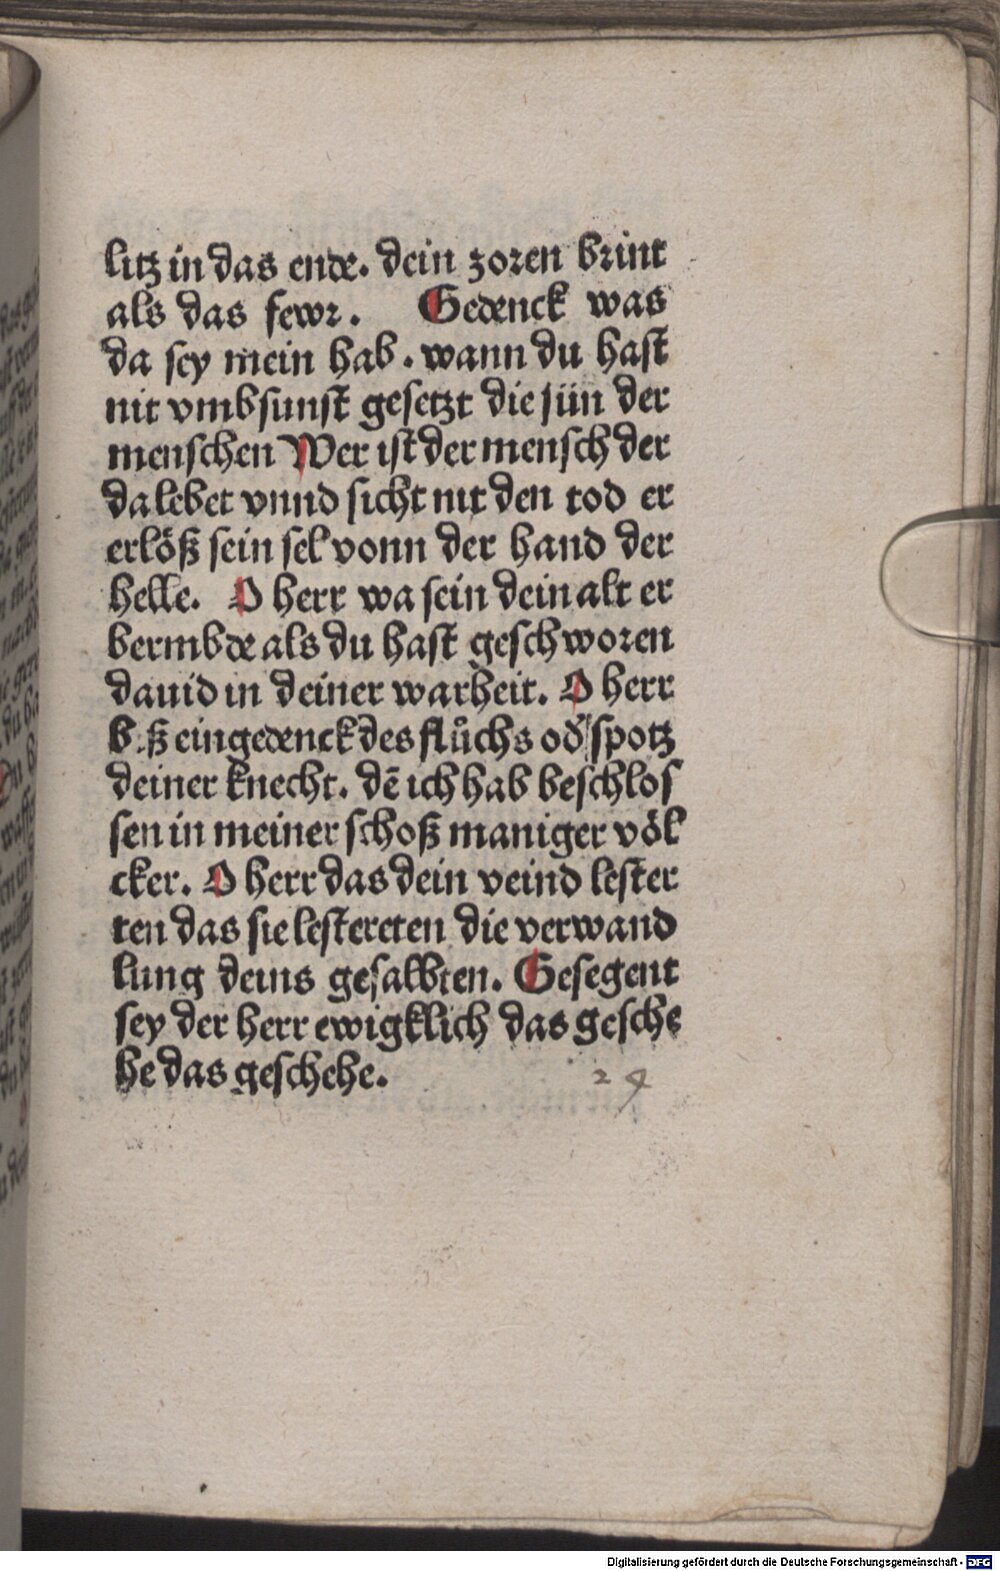 litz in das ende. dein zoren brint
als das fewr. Gedenck was
da sey mein hab. wann du hast
nit vmbsunst gesetzt die sün der
menschen Wer ist der mensch der
da lebet vnnd sicht nit den tod er
erlöß sein sel vonn der hand der
helle. O herr wa sein dein alt er
bermbde als du hast geschworen
dauid in deiner warheit. O herr
biß eingedenck des flůchs od' spotz
deiner knecht. dē ich hab beschlos
sen in meiner schoß maniger völ
cker. O herr das dein veind lester
ten das sie lestereten die verwand
lung deins gesalbten. Gesegent
sey der herr ewigklich das gesche
he das geschehe.
24
Digitalisierung gefördert durch die Deutsche Forschungsgemeinschaft - DFG